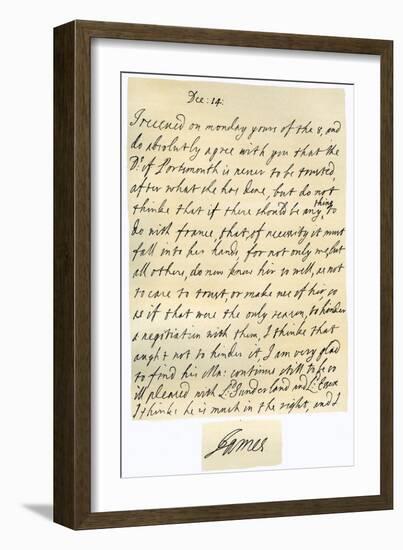 Dec: 14:
I receaved on monday yours of the 8, and
do absolutly agree with you that the
D: of Portsmouth is never to be trusted,
after what she has done, but do not
thinke that if there should be any thing to
do with france that, of necessity it must
fall into her hands, for not only me, but
all others, do now know her so well, as not
to care to trust, or make use of her, so
as if that were the only reason, to hinder
a negotiation with them, I thinke that
aught not to hinder it, I am very glad
to find his Ma: continus still to be so
ill pleased with Ld Sunderland and Ld Essex
I thinke he is much in the right, and I
James